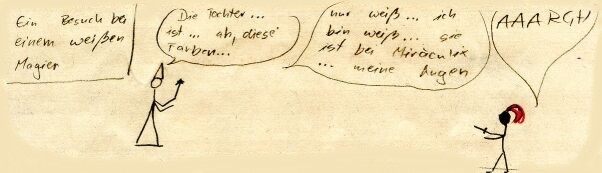 Ein Besuch bei
einem weißen
Magier
Die Tochter...
ist... ah, diese
Farben...
nur weiß... ich
bin weiß... sie
ist bei Miraculix
... meine Augen
AAARGH